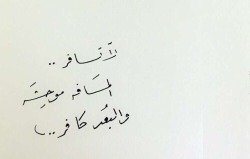 لا تسافر ..
المسَافه موحِشَه
والبُعد كافر ..)